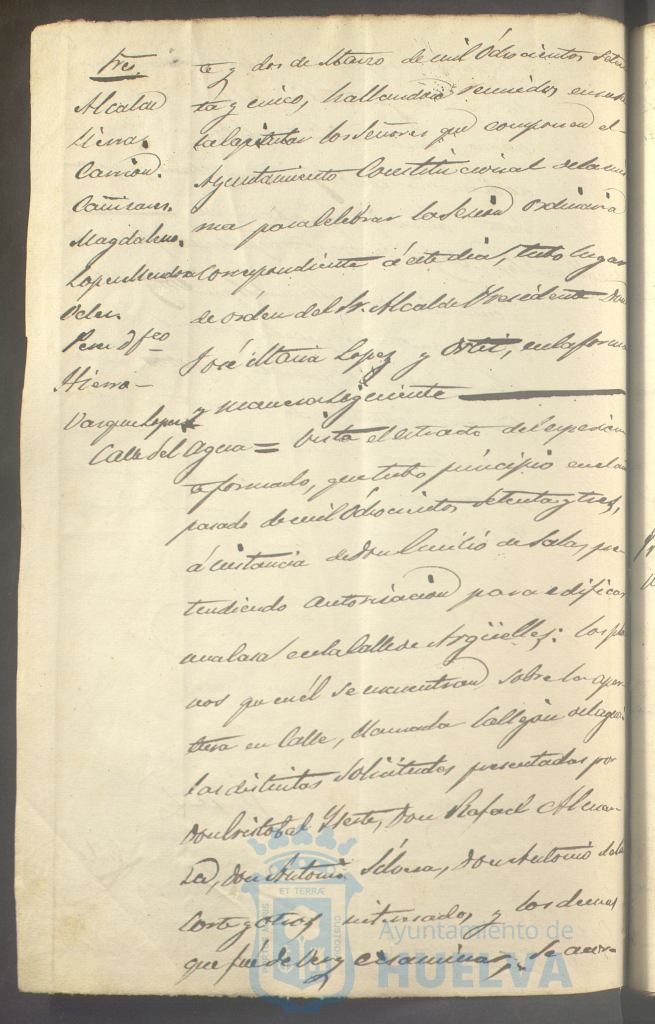 Sres.
Alcalde
Sierra.
Carrion.
Cañizares.
Magdaleno.
Lopez Mendoza
Perez D. Feo
Hierro
Vazquez Lopez
te y dos de Marzo de mil Ochocientos Seten
ta y cinco, hallandose reunidos en su
Sala Capitular los Señores que componen el
Ayuntamiento Constitucional de la mis
ma para celebrar la Sesion Ordinaria
correspondiente á este dia, tubo lugar
de órden del Sr. Alcalde Presidente Don
José Maria Lopez y Ortiz, en la forma
y manera siguiente
Calle del Agua = Vista el estracto del espedien
te formado, que tubo principio en el año
pasado de mil Ochocientos Setenta y tres,
á instancia de Don Emilio de Salas, pre
tendiendo autorizacion para edificar
una casa en la Calle de Argüelles: los pla
nos que en él se encuentran sobre la aper
tura en Calle, llamada Callejon del agua:
las distintas Solicitudes presentadas por
Don Cristobal Yerte, Don Rafael Alman
za, Don Antonio Silvera, Don Antonio de la
Corte y otros interesados y los demas
que fué de ver y ecsaminar, Se acor
ET TERRÆ
CUSTODIA
Ayuntamiento de
HUELVA